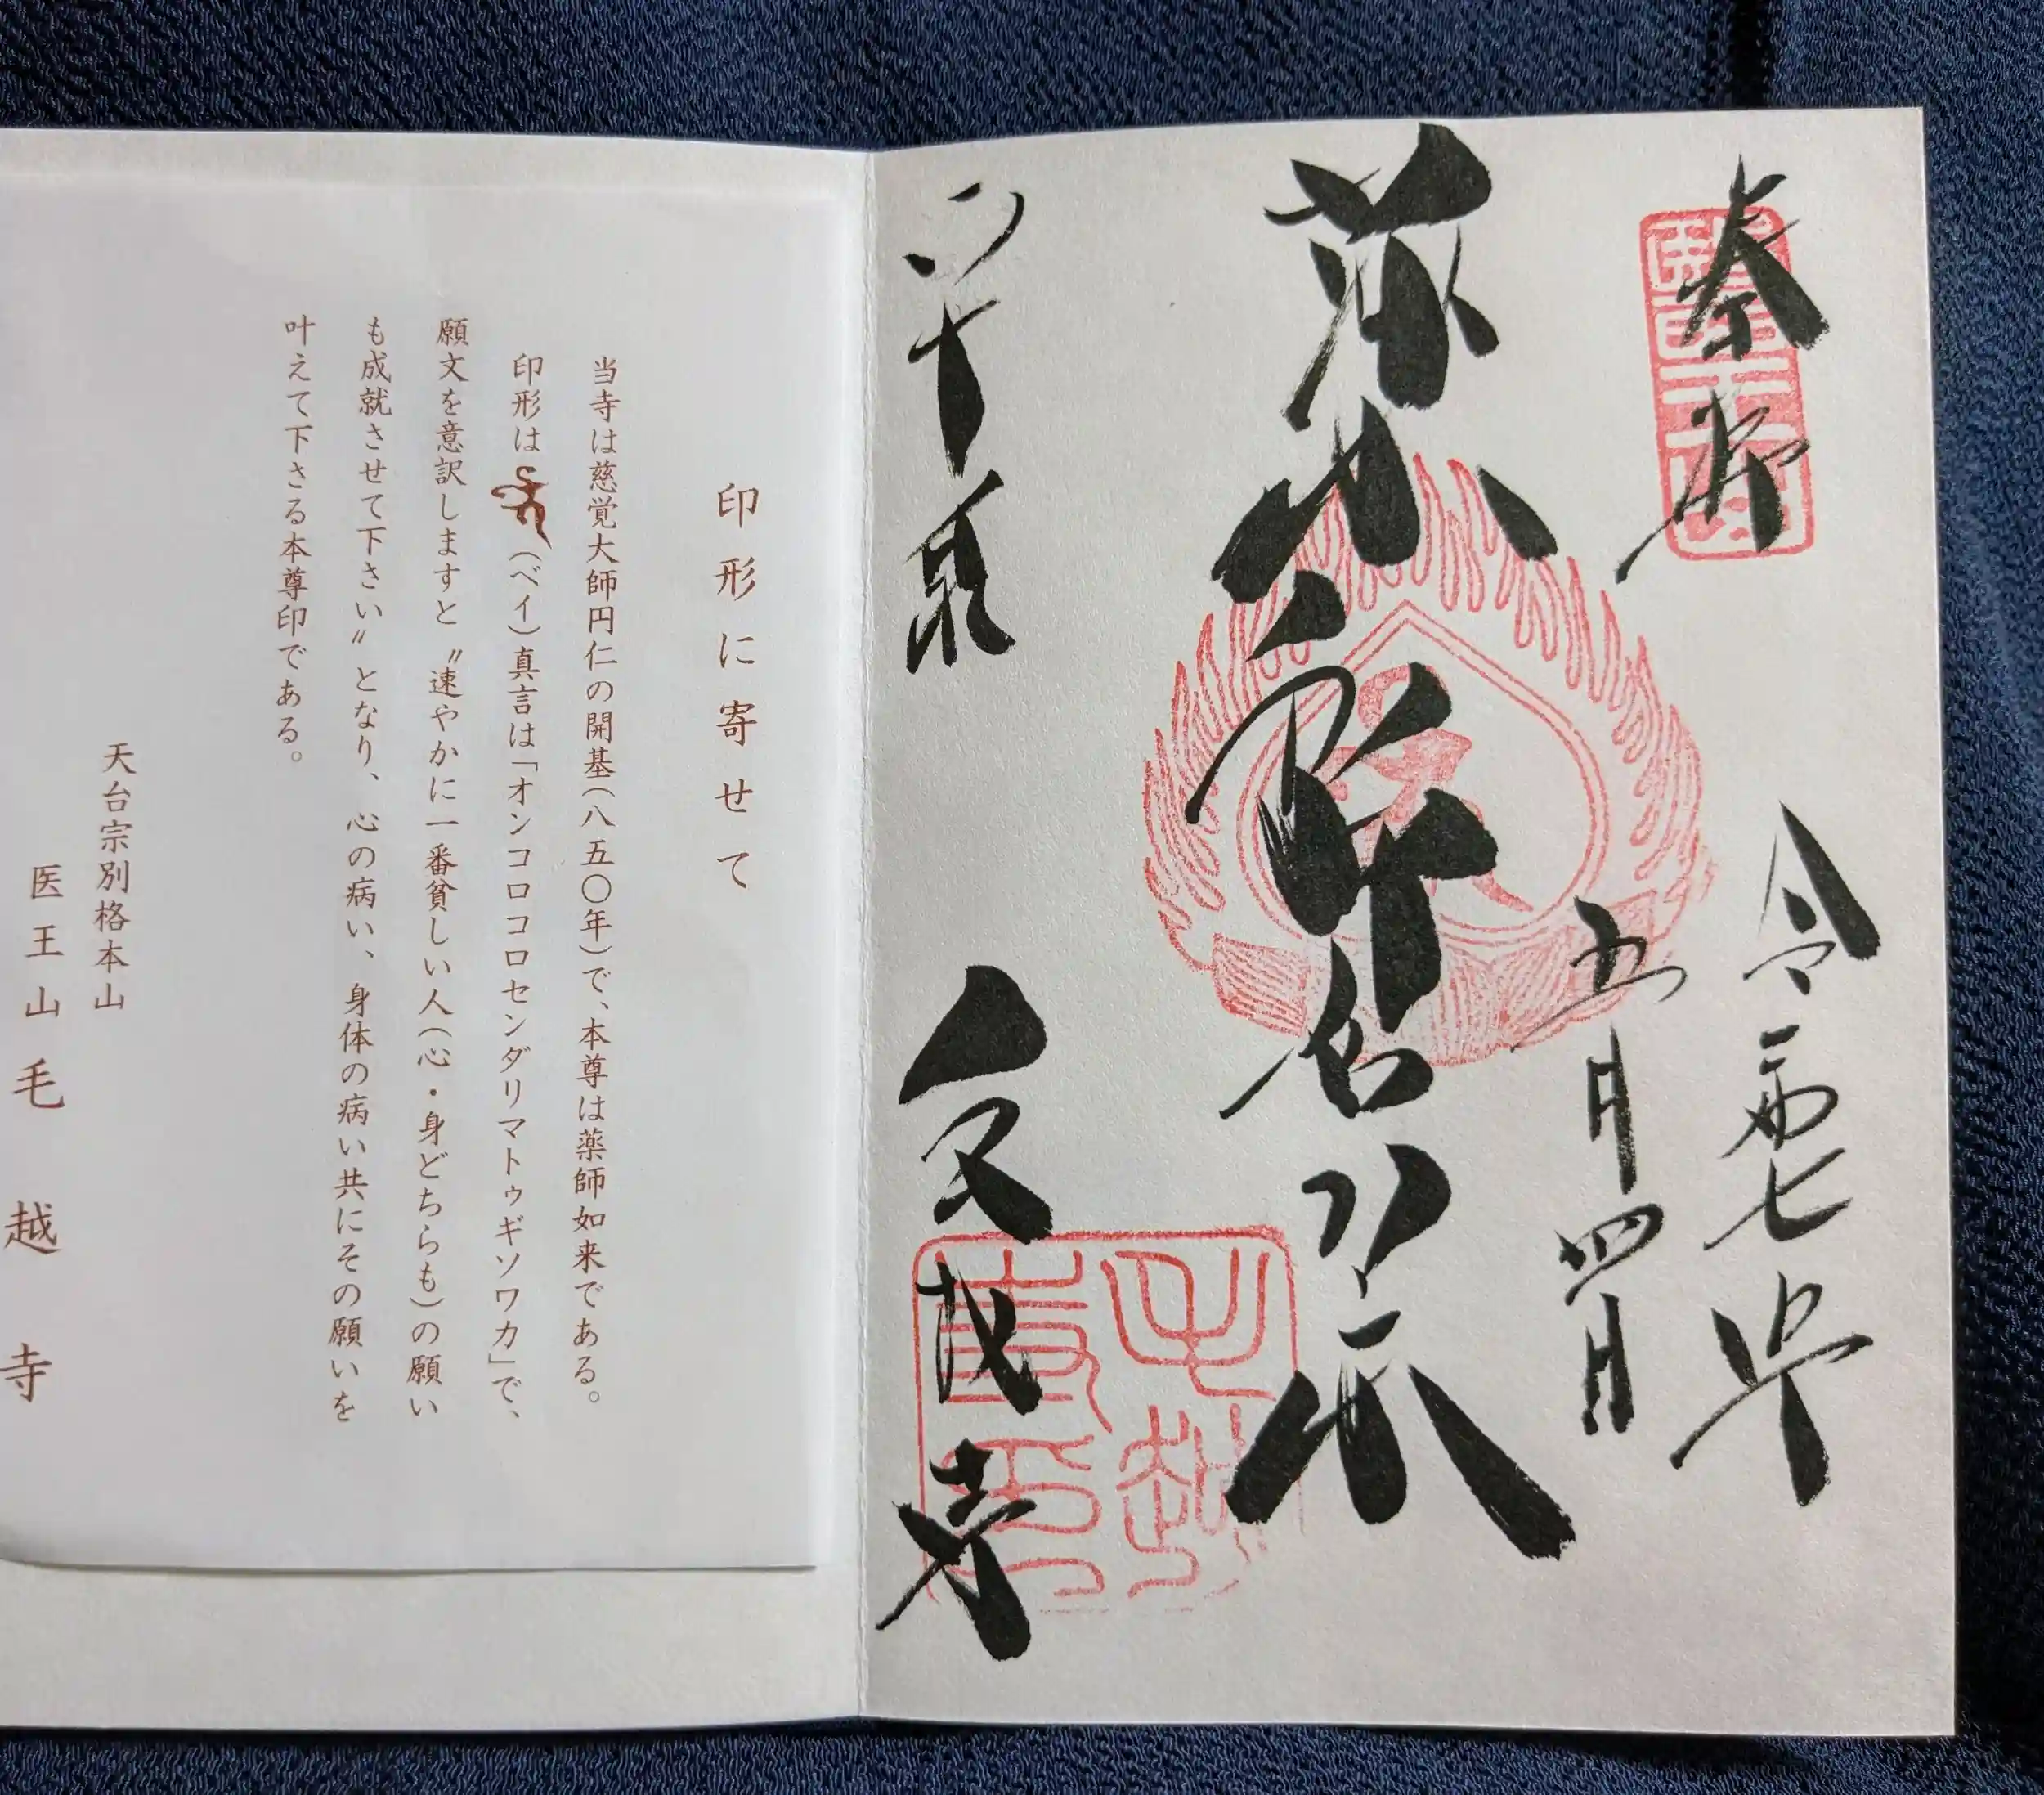 奉拝
令和七年
五月四日
薬師如来
平泉
毛越寺
印形に寄せて
当寺は慈覚大師円仁の開基(八五〇年)で、本尊は薬師如来である。
印形は(ベイ)真言は「オンコロコロセンダリマトゥギソワカ」で、
願文を意訳しますと〝速やかに一番貧しい人(心・身どちらも)の願い
も成就させて下さい〟となり、心の病い、身体の病い共にその願いを
叶えて下さる本尊印である。
天台宗別格本山
医王山毛越寺